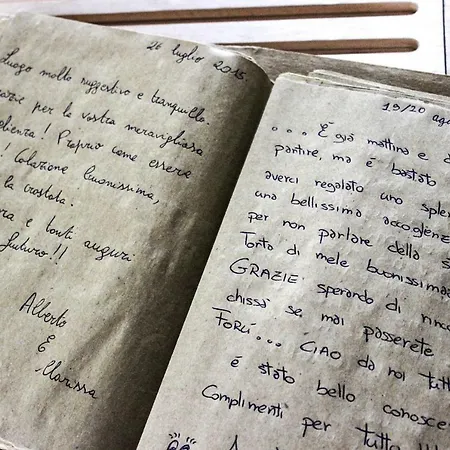 26 luglio 2015.
Luogo molto suggestivo e tranquillo.
per la vostra meravigliosa
! Proprio come essere
! Colazione buonissima,
la crostata.
e tanti auguri
futuro!!
Alberto
E
Marissa
19/20
... È già mattina e
partire, ma è bastato
averci regalato uno
una bellissima
per non parlare della
Torta di mele buonissima
GRAZIE! sperando di
chissà se, mai passerete
FORLÌ... CIAO da noi
è stato bello
Complimenti per